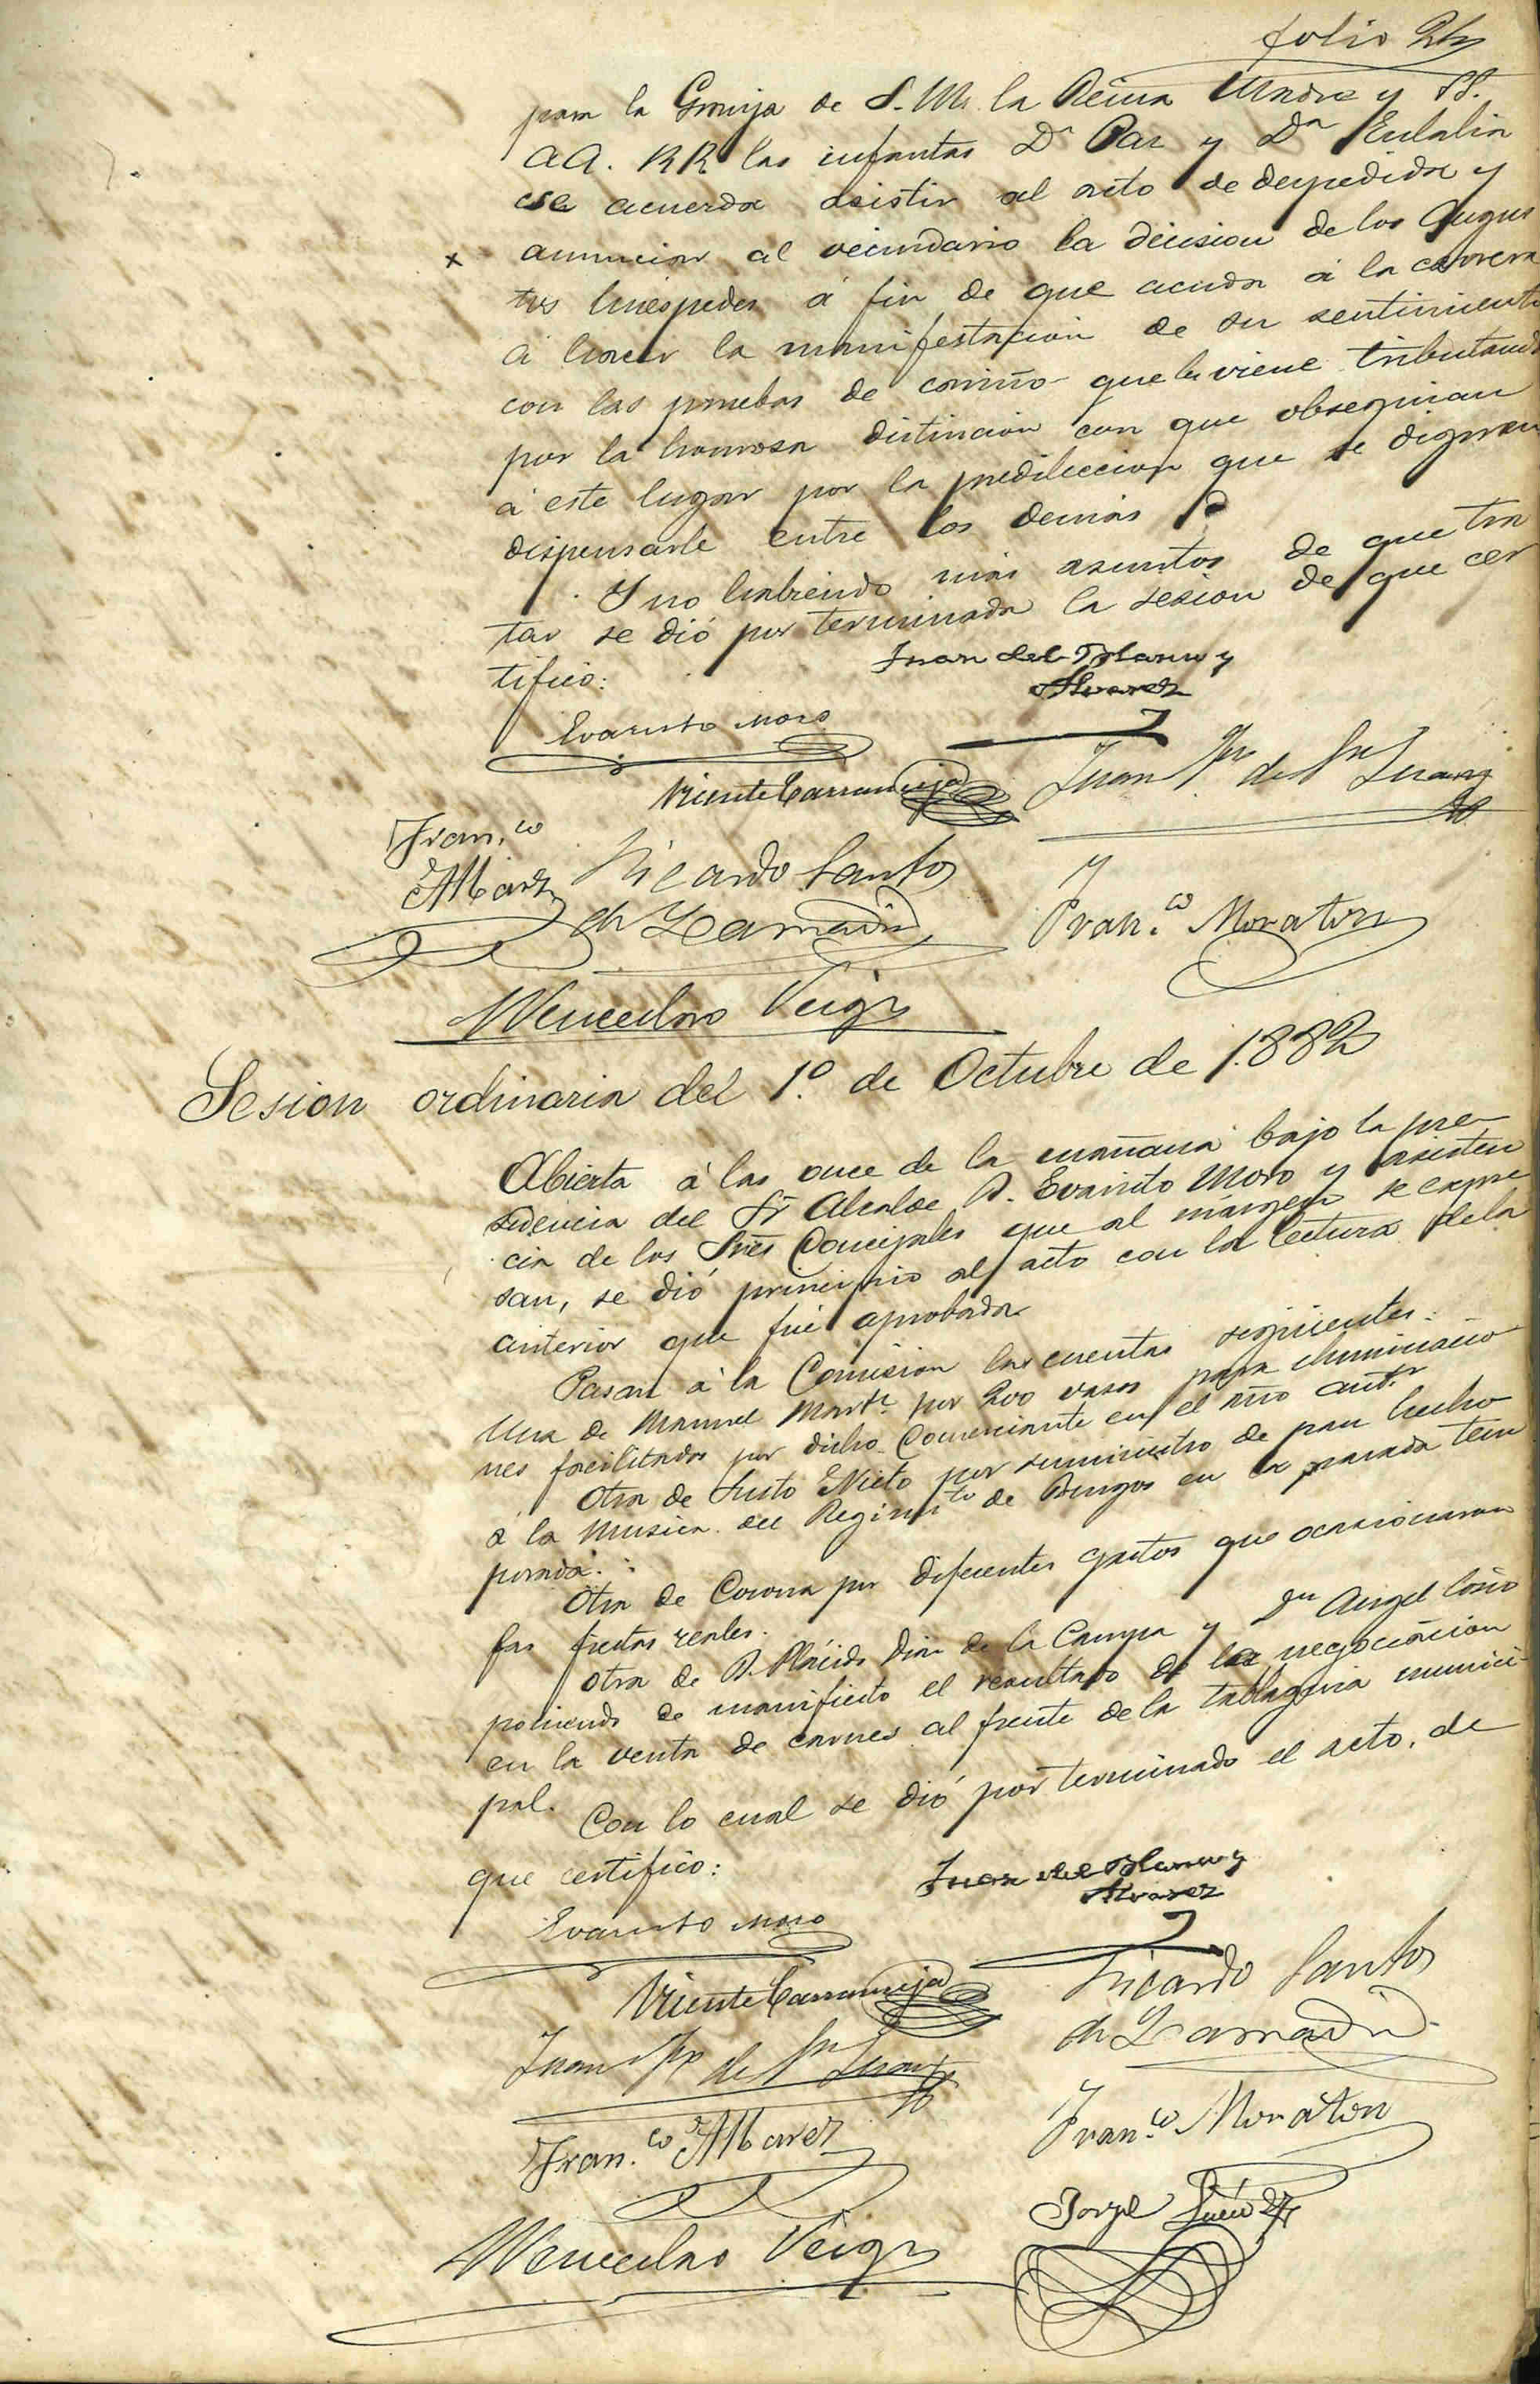 folio 24
para la Granja de S. M. la Reina Madre y SS.
AA. RR las infantas Dª Paz y Dª Eulalia
se acuerda asistir al acto de despedida y
x anunciar al vecindario la decision de los Augus
tos huéspedes á fin de que acuda á la carrera
á hacer la manifestacion de su sentimiento
con las pruebas de cariño que les viene tributando
por la honrosa distincion con que obsequian
á este lugar por la predileccion que se dignan
dispensarle entre los demás
Y no habiendo más asuntos de que tra
tar se dió por terminada la sesion de que cer
tifico:
Juan del Blanco y
Alvarez
Evaristo Moro
Vicente Carrunieja
Juan de Sn Juan
Fran.co
Albarez
Ricardo Santos
de Lamadrid
Fran.co Moraton
Wenceslao Veiga
Sesion ordinaria del 1.º de Octubre de 1.882
Abierta á las once de la mañana bajo la pre
sidencia del Sr Alcalde D. Evaristo Moro y asisten
cia de los Sres Concejales que al márgen se expre
san, se dió principio al acto con la lectura de la
anterior que fué aprobada
Pasan á la Comision las cuentas siguientes:
Una de Manuel Martz por 200 vasos para iluminacio
nes facilitados por dicho Comerciante en el año antr
Otra de Justo Nieto por suministro de pan hecho
á la Musica del Regimto de Burgos en la pasada tem
porada.
Otra de Corona por diferentes gastos que ocasionaron
las fiestas reales.
Otra de D. Plácido Diaz de la Campa y Dn Angel Cosio
poniendo de manifiesto el resultado de la negociacion
en la venta de carnes al frente de la tablageria munici
pal.
Con lo cual se dió por terminado el acto, de
que certifico:
Juan del Blanco y
Alvarez
Evaristo Moro
Vicente Carrunieja
Ricardo Santos
de Lamadrid
Juan de Sn Juan
Fran.co Albarez
Fran.co Moraton
Jorge
Wenceslao Veiga